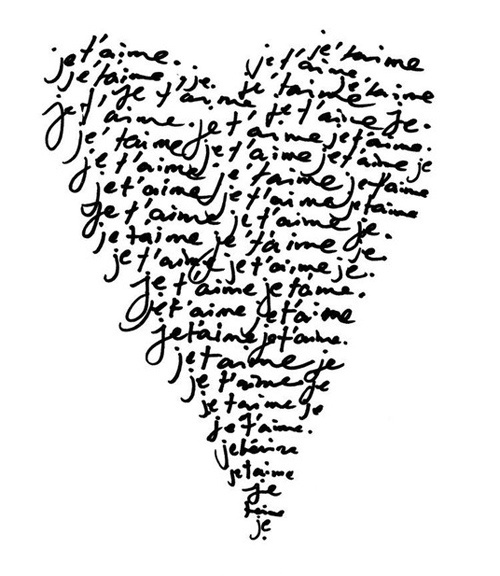 je t'aime. je t'aime
je t'aime, je. je t'aime. je t'aime
je t'aime je t'aime
je t'aime. je t'aime je t'aime je.
je t'aime je t'aime je t'aime.
je t'aime je t'aime je t'aime je
je t'aime je t'aime je t'aime
je t'aime je t'aime je.
je t'aime je t'aime je.
je t'aime je t'aime je.
je t'aime je t'aime.
je t'aime je t'aime
je t'aime je t'aime.
je t'aime je
je t'aime je
je t'aime je
je t'aime.
je t'aime
je
t'aime
je